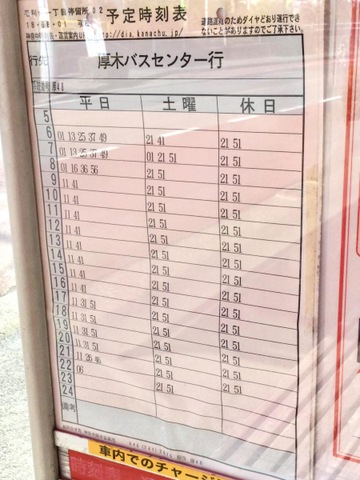 予定時刻表
dia.kanachu.jp/
道路混雑のためダイヤどおり運行できないことがありますのでご了承下さい
行先 厚木バスセンター行
平日 土曜 休日
5
6 01 13 25 37 49 21 41 21 51
7 01 13 25 37 49 01 21 51 21 51
8 01 16 36 56 21 51 21 51
9 11 41 21 51 21 51
10 11 41 21 51 21 51
11 11 41 21 51 21 51
12 11 41 21 51 21 51
13 11 41 21 51 21 51
14 11 41 21 51 21 51
15 11 41 21 51 21 51
16 11 41 21 51 21 51
17 11 31 51 21 51 21 51
18 11 31 51 21 51 21 51
19 11 31 51 21 51 21 51
20 11 31 51 21 51 21 51
21 11 26 46 21 51 21 51
22 06 21 51 21 51
23
24
備考
車内でのチャージ